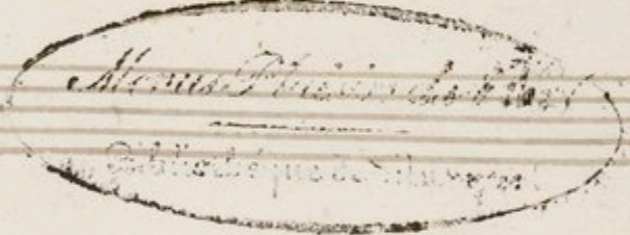 Menus Plaisirs du Roi
Bibliothèque de Musique